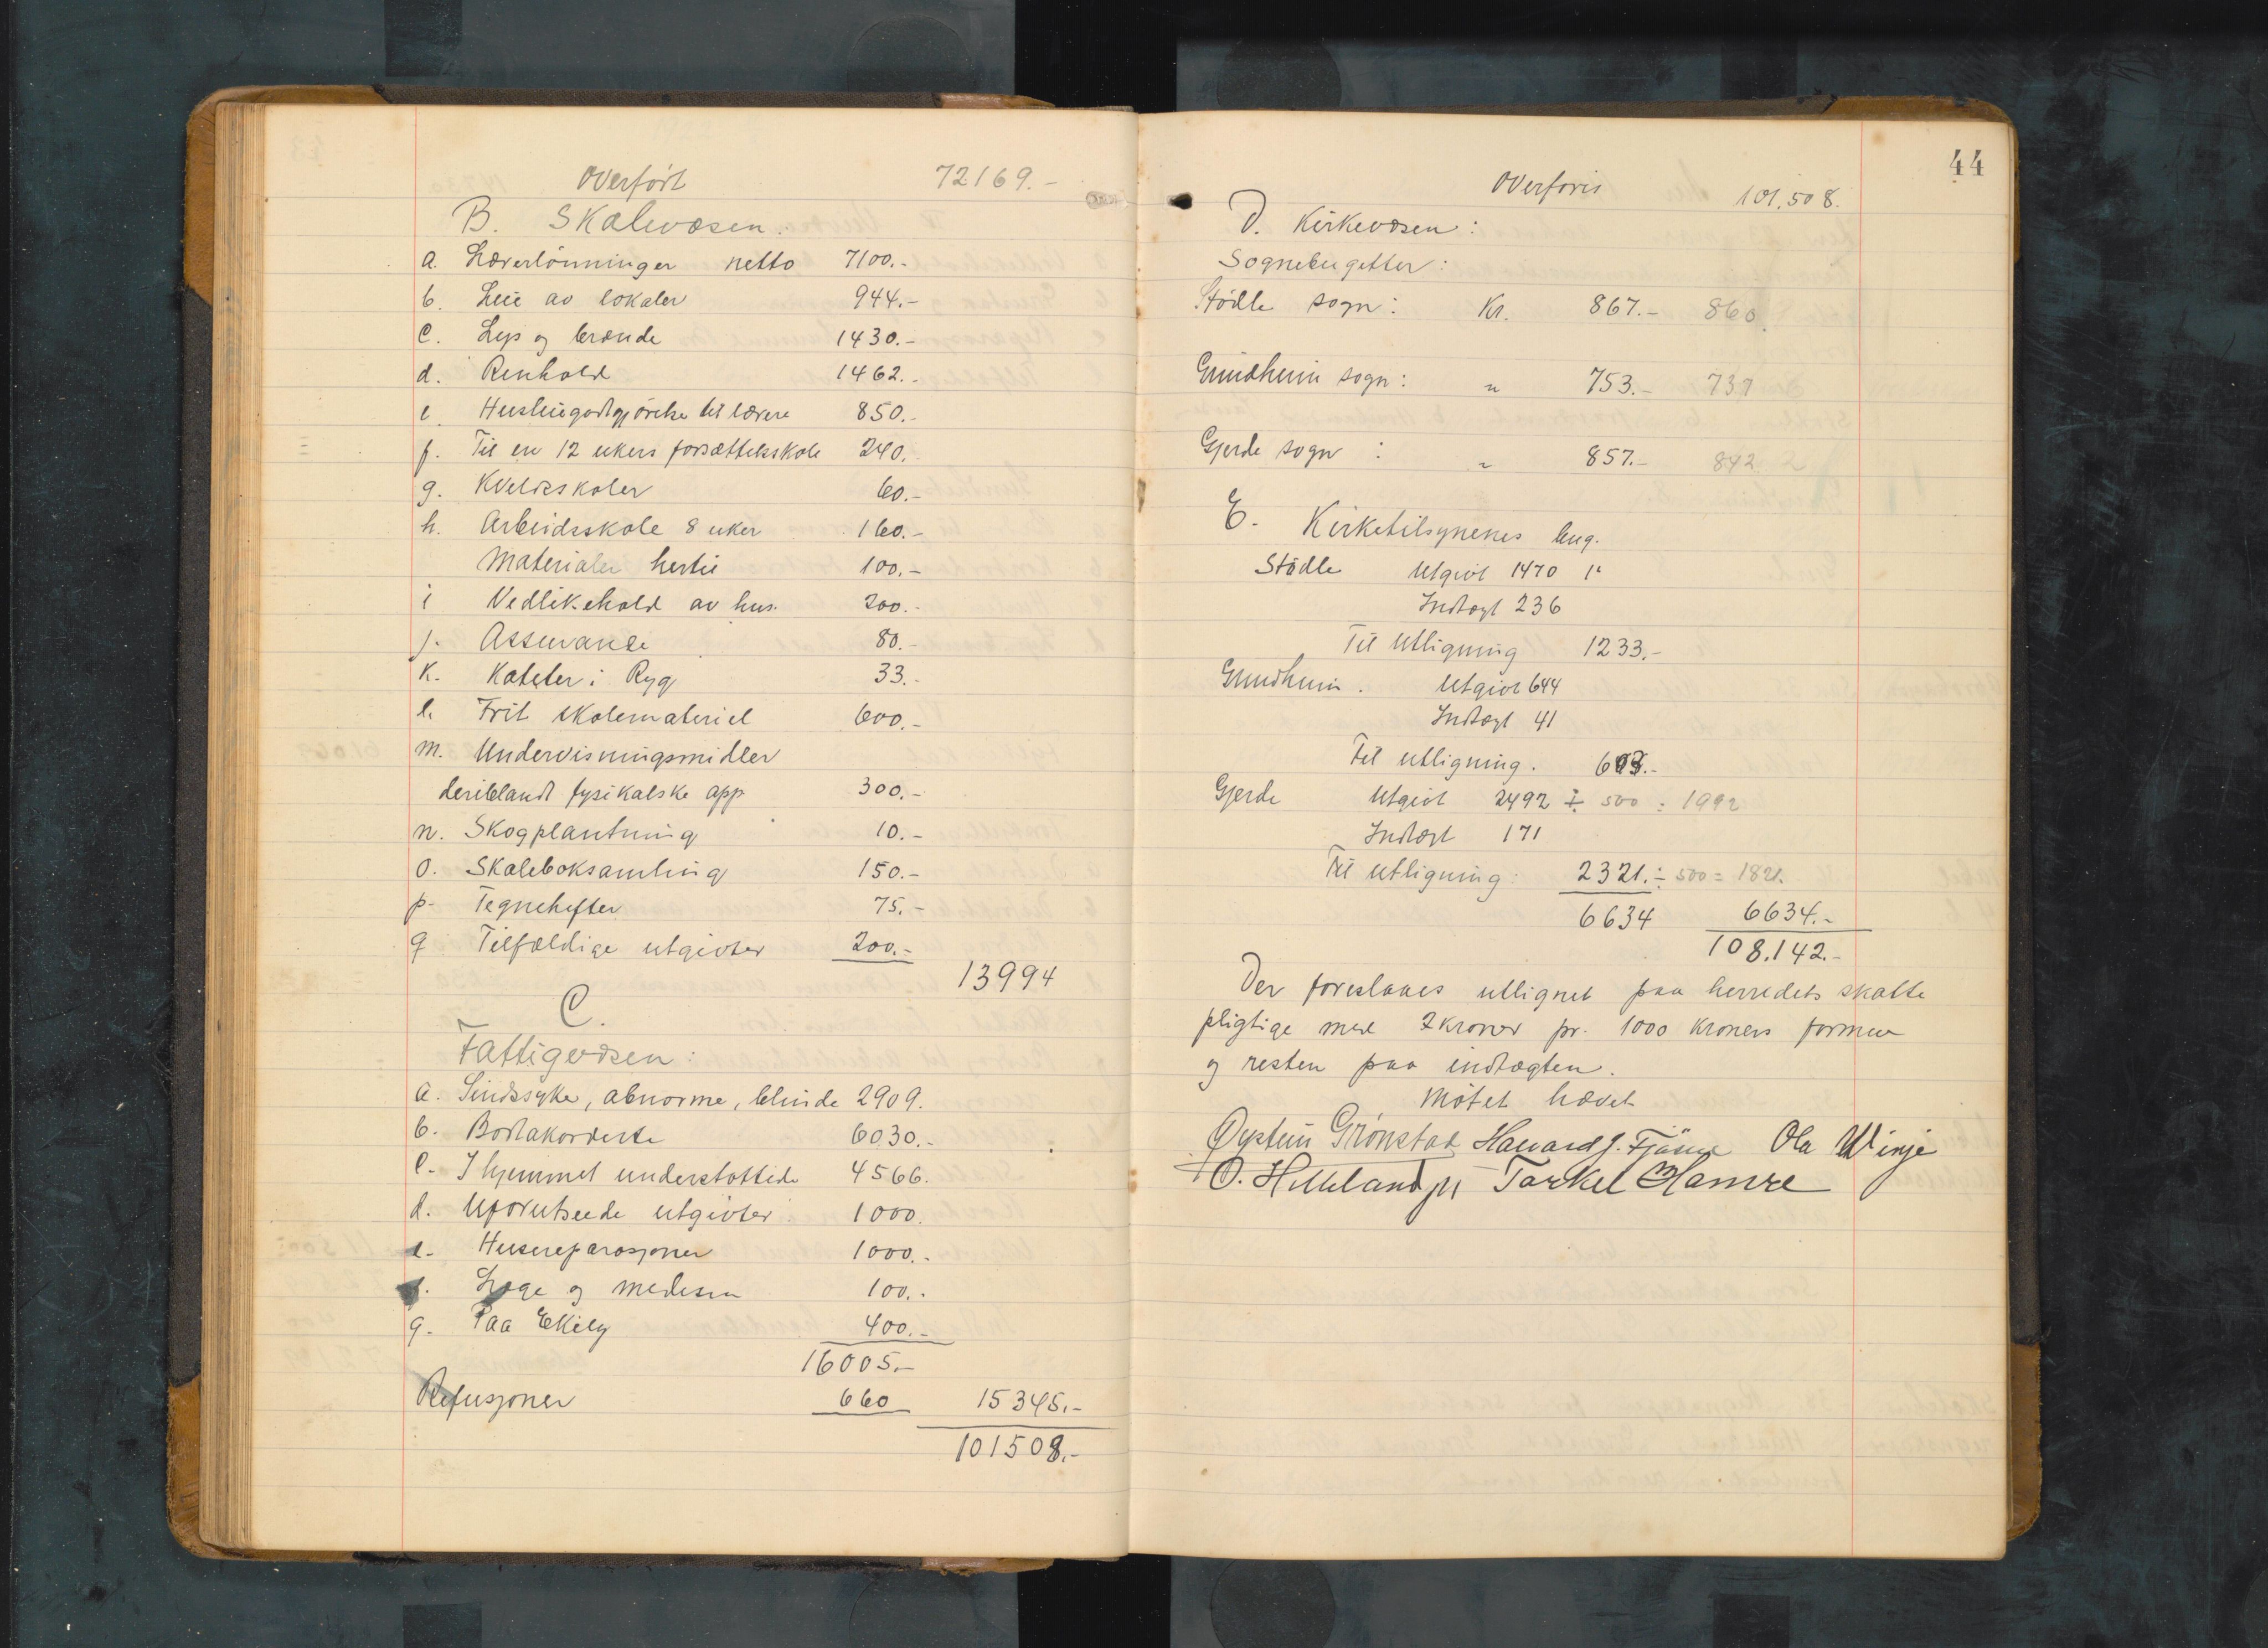 Overført 72169.-
B. Skolevæsen.
a. Lærerlönninger netto 7100.-
b. Leie av lokaler 944.-
c. Lys og brænde 1430.-
d. Renhold 1462.-
e. Husleiegodtgjörelse til lærere 850.-
f. Til en 12 ukers forsættelsskole 240.-
g. Kveldsskoler 60.-
h. Arbeidsskole 8 uker 160.-
Materialer hertil 100.-
i Vedlikehold av hus. 200.-
j. Assurance 80.-
k. Kateter i Ryg 33.-
l. Frit skolemateriel 600.-
m. Undervisningsmidler
deriblandt fysikalske app 300.-
n. Skogplantning 10.-
o. Skoleboksamling 150.-
p. Tegnehefter 75.-
q Tilfældige utgivter 200.-
13994
C.
Fattigvæsen:
a. Sindssyke, abnorme, blinde 2909.
b. Bortakorderte 6030.-
c. I hjemmet understøttede 4566.
d. Uforutseede utgivter. 1000.
e. Husereparasjoner 1000.-
f. Læge og medesin 100.-
g. Paa Ekely 400.-
16005.-
Refusjoner 660 15345.-
101508.-
44
Overføris 101.508.
D. Kirkevæsen:
Sognebugetter:
Stödle sogn: Kr. 867.- 860.
Grindheim sogn: " 753.- 737
Gjerde sogn : " 857.- 842
E. Kirketilsynenes bug.
Stödle Utgivt 1470
Indtægt 236
Til utligning 1233.-
Grindheim. Utgivt 644
Indtægt 41
Til utligning. 603.-
Gjerde Utgivt 2492 ÷ 500 = 1992
Indtægt 171
Til utligning: 2321.- ÷ 500 = 1821.
6634 6634.-
108.142.-
Der foreslaaes utlignet paa herredets skatte
pligtige med 2 kroner pr. 1000 kroners formue
og resten paa indtægten.
Mötet hævet
Øystein Grønstad Haward J. Fjösne Ola Winje
O. Helleland Torkel Hamre